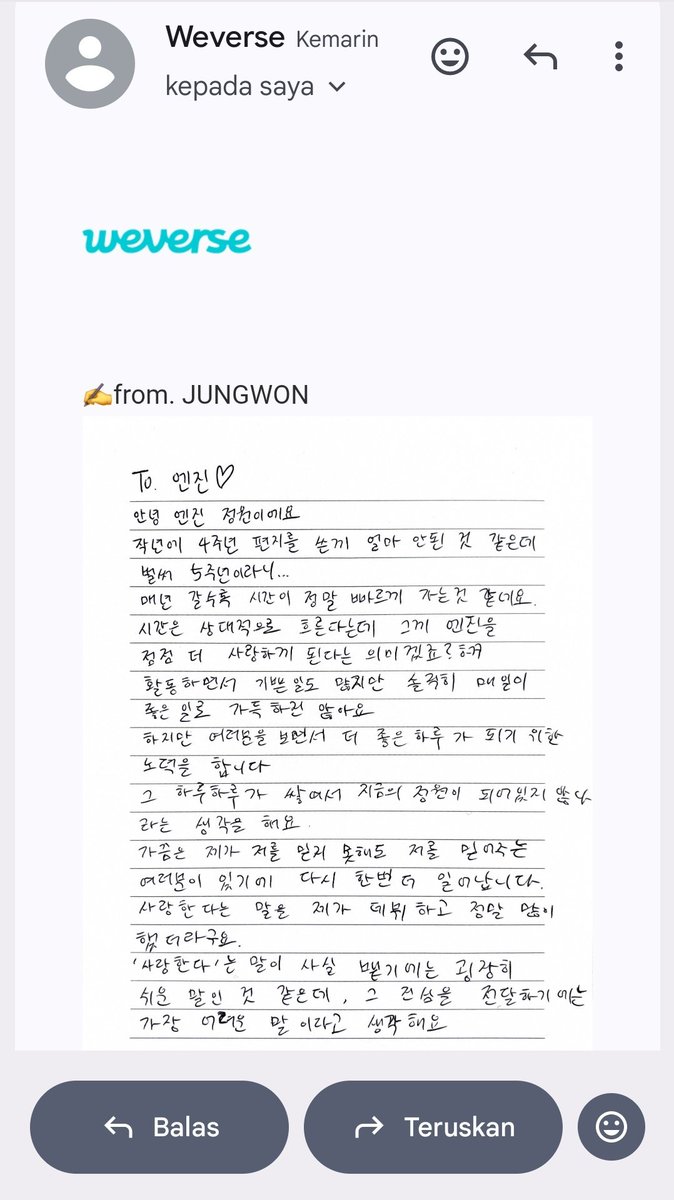 Weverse Kemarin
kepada saya
weverse
✍️from. JUNGWON
To. 엔진♡
안녕 엔진 정원이에요
작년에 4주년 편지를 쓴지 얼마 안된 것 같은데
벌써 5주년이라니...
매년 갈수록 시간이 정말 빠르게 가는것 같네요.
시간은 상대적으로 흐른다는데 그게 엔진을
점점 더 사랑하게 된다는 의미겠죠? ㅎㅎ
활동하면서 기쁜 일도 많지만 솔직히 매일이
좋은 일로 가득 하진 않아요
하지만 여러분을 보면서 더 좋은 하루가 되기 위한
노력을 합니다
그 하루하루가 쌓여서 지금의 정원이 되어있지 않나
라는 생각을 해요.
가끔은 제가 저를 믿지 못해도 저를 믿어주는
여러분이 있기에 다시 한번 더 일어납니다.
사랑한다는 말을 제가 데뷔 하고 정말 많이
했더라구요.
'사랑한다'는 말이 사실 뱉기에는 굉장히
쉬운 말인 것 같은데, 그 진심을 전달하기에는
가장 어려운 말이라고 생각해요
Balas
Teruskan